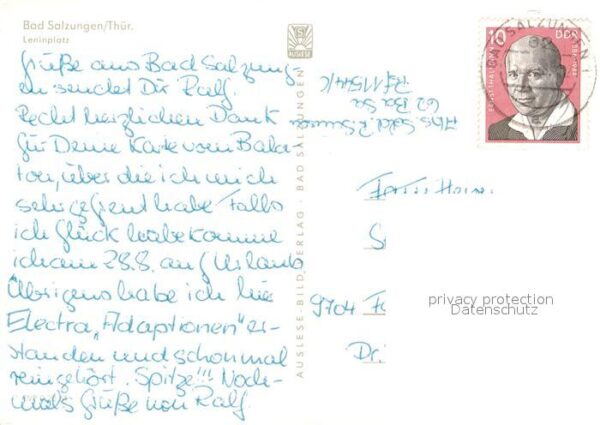 Bad Salzungen/Thür.
Leninplatz
Grüße aus Bad Salzung-
en sendet Dir Ralf.
Recht herzlichen Dank
für Deine Karte vom Bala-
ton, über die ich mich
sehr gefreut habe. Falls
ich Glück habe komme
ich am 28.8. auf Urlaub
Übrigens habe ich hier
Electra „Adaptionen" er-
standen und schon mal
reingehört. Spitze!!! Noch-
mals Grüße von Ralf
AUSLESE-BILD-VERLAG · BAD SALZUNGEN
AUSLESE
Abs. Sold.
62 Ba Sa
10
DDR
BAD SALZUNGEN
9704
privacy protection
Datenschutz